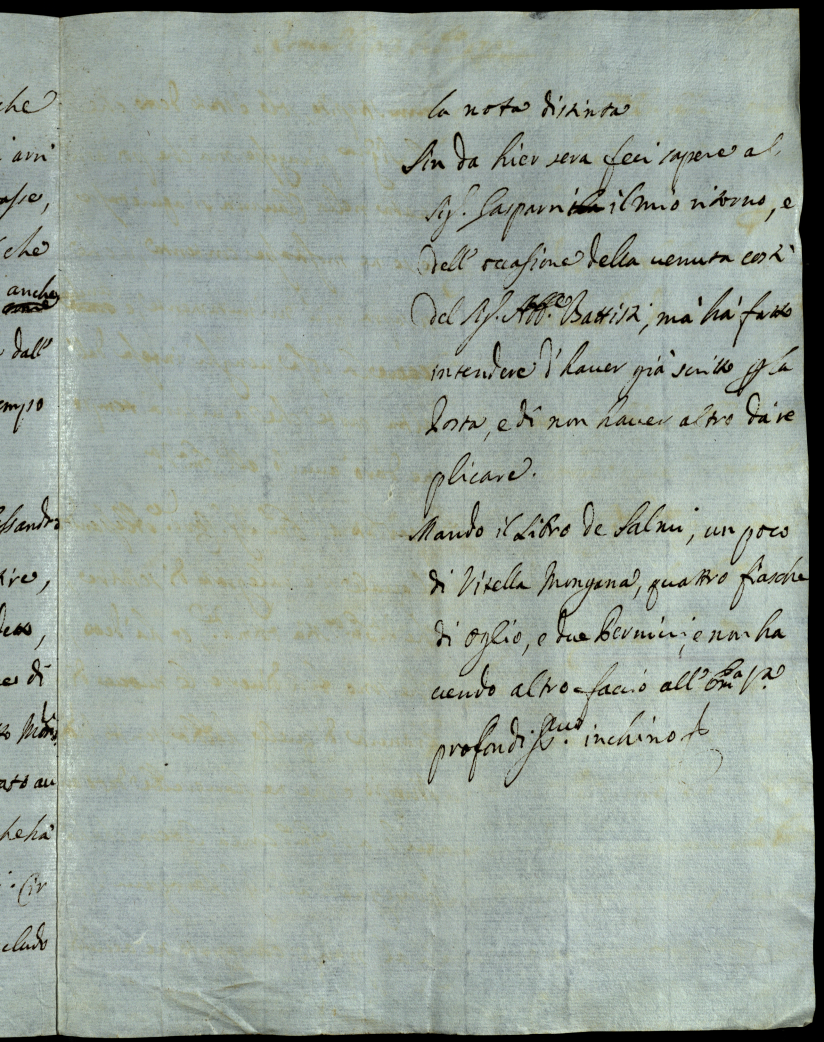 che
arri
asse,
che
anche
dall'
empo
essandro
tre,
detto,
di
ato au
che ha
Cir
cludo
la nota distinta
Sin da hier sera feci sapere al
Sig.r Gasparri il mio ritorno, e
dell' occasione della venuta costì
del Sig.r Abb.e Battisti, mà hà fatto
intendere d'haver già scritto p la
Posta, e di non haver altro dà re
plicare.
Mando il Libro de Salmi, un poco
di Vitella Mongana, quattro fiasche
di oglio, e due Bermini; e non ha
vendo altro faccio all' Em.a V.a
profondiss.mo inchino